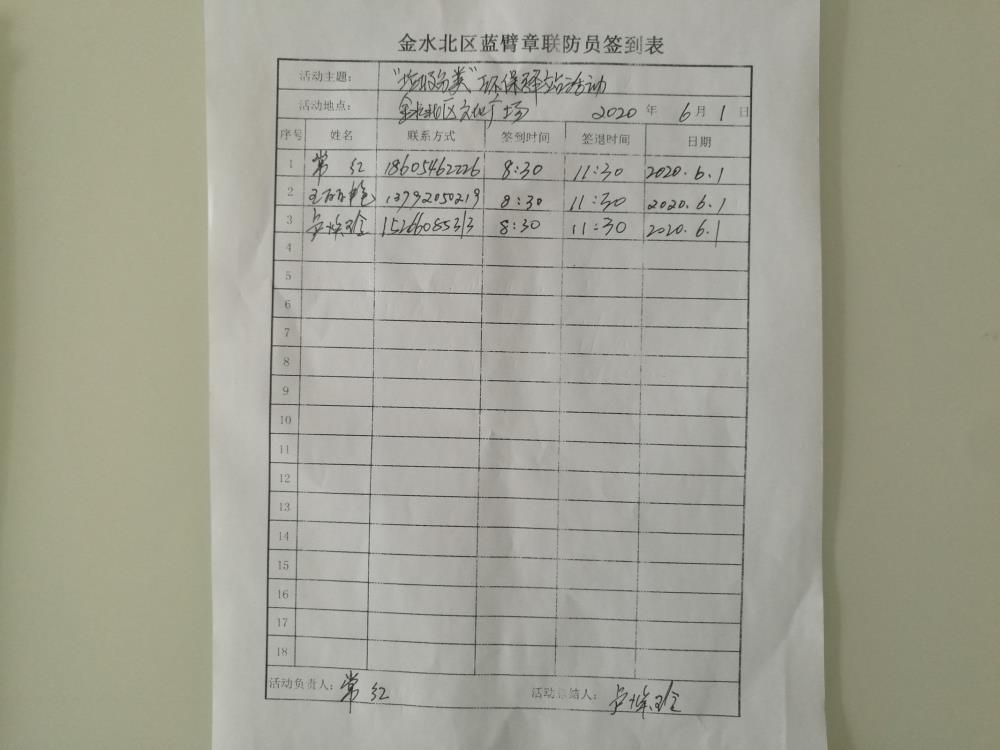 金水北区蓝臂章联防员签到表
活动主题： "垃圾分类"环保驿站活动
活动地点： 金水北区文化广场 2020 年 6 月 1 日
序号 姓名 联系方式 签到时间 签退时间 日期
1 常红 18605462226 8:30 11:30 2020.6.1
2 13792050219 8:30 11:30 2020.6.1
3 15266085313 8:30 11:30 2020.6.1
4
5
6
7
8
9
10
11
12
13
14
15
16
17
18
活动负责人： 常红 活动总结人：